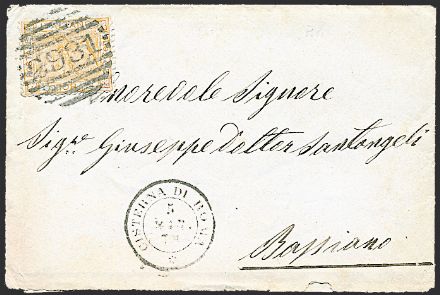 Onorevole Signore
Sigre Giuseppe Dottor Santangeli
CISTERNA DI ROMA
5
MAR.
Bassiano